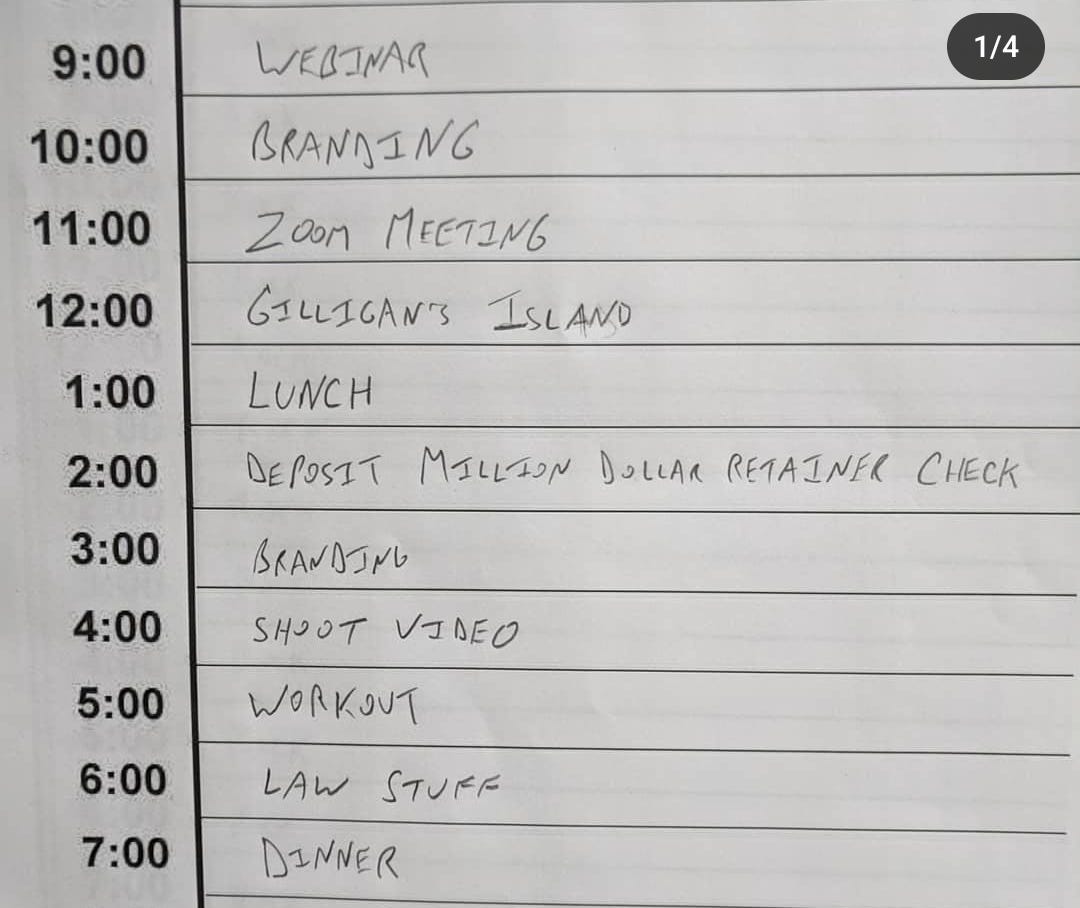 1/4
9:00 WEBINAR
10:00 BRANDING
11:00 ZOOM MEETING
12:00 GILLIGAN'S ISLAND
1:00 LUNCH
2:00 DEPOSIT MILLION DOLLAR RETAINER CHECK
3:00 BRANDING
4:00 SHOOT VIDEO
5:00 WORKOUT
6:00 LAW STUFF
7:00 DINNER